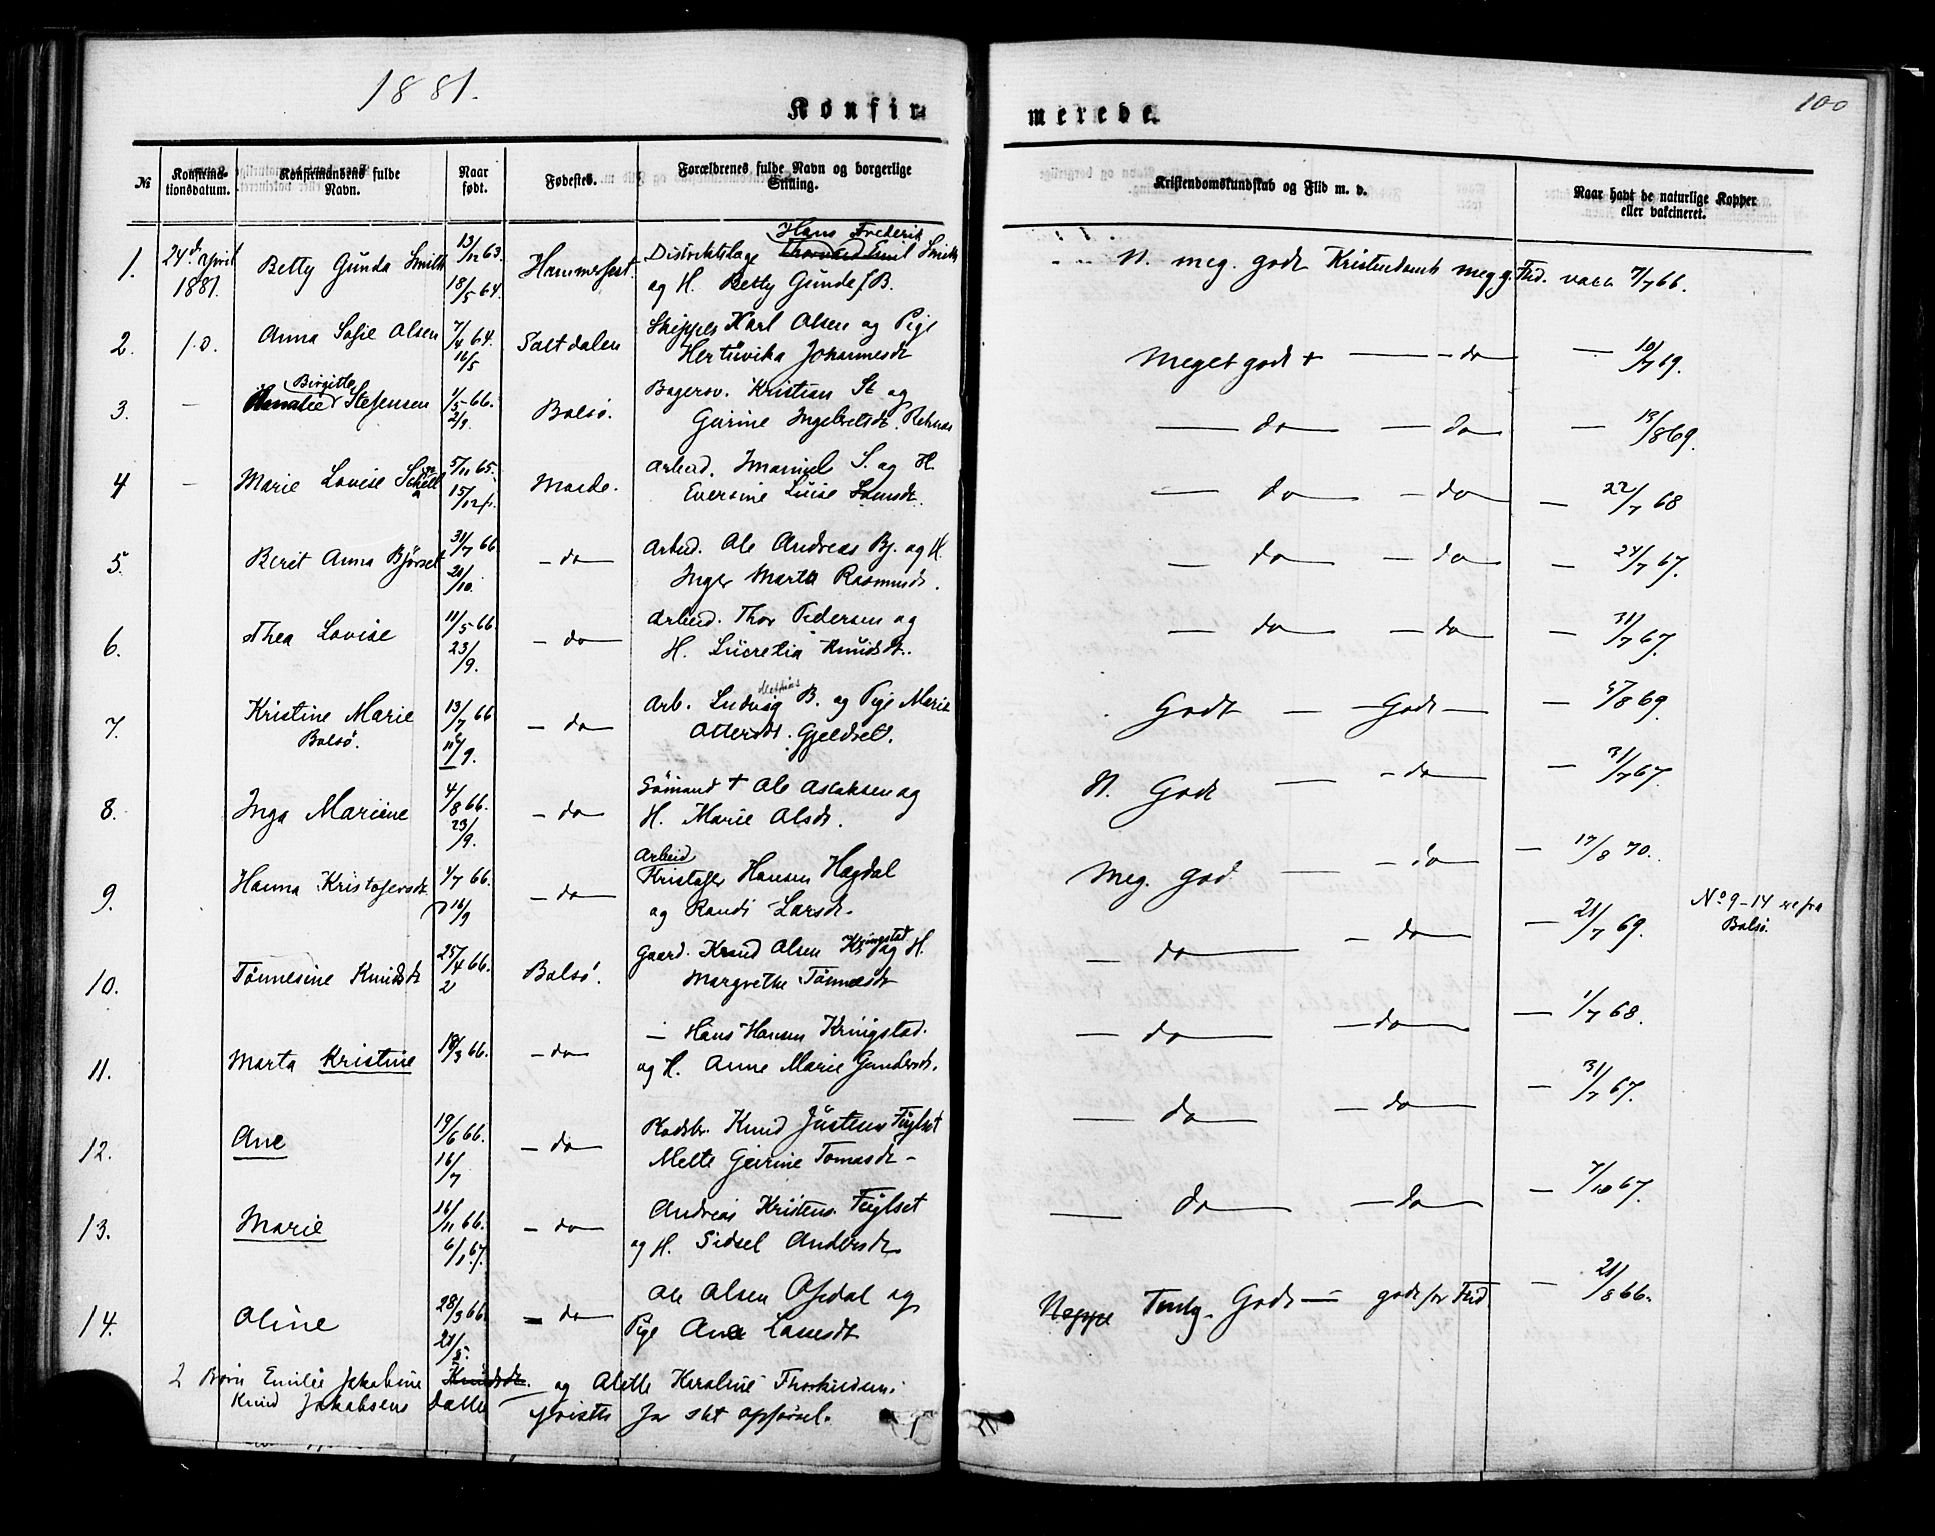 1881.
100
Konfir-
merede.
№
Konfirma-
tionsdatum.
Konfirmandens fulde
Navn.
Naar
født.
Fødested.
Forældrenes fulde Navn og borgerlige
Stilling.
Kristendomskundskab og Flid m. v.
Naar havt de naturlige Kopper
eller vakcineret.
1.
24de April
1881.
Betty Gunda Smith
13/12 63.
18/5 64.
Hammerfest.
Hans Frederik
Distriktslæge Emil Smith
og H. Betty Gunda f B.
N. meg. godt Kristendomk meg g. Flid. vacc 7/7 66.
2.
Anna Sofie Olsen
7/4 64.
16/5
Saltdalen
Skipper Karl Olsen og Pige
Johannesdt
Meget godt + — do
— 10/7 69.
3.
—
Birgitte
Stefensen
1/5 66.
2/9.
Bolsø.
Kristian St og
Geirine Ingebretsdt.
— do — do
— 13/8 69.
4
—
Marie Lovise
5/11 65.
15/12
Molde.
Arbeid. S. og H.
Eversine Luise
— do — do
— 22/7 68
5.
Berit Anna Bjørset
31/7 66
21/10.
— do —
Arbeid. Ole Andreas Bj. og H.
Inger Marta Rasmusdt.
— do — do
— 24/7 67.
6.
Thea Lovise
11/5 66.
23/9.
— do —
Arbeid. Thor Pedersen og
H. Lucretia Knudsdt.
— do — do
— 31/7 67.
7.
Kristine Marie
Bolsø.
13/7 66
— do
Arb. Ludvig B. og Pige Marie
Ottersdt. Gjeldset.
Godt — — Godt —
8.
Inga Mariene
4/8 66.
23/9.
— do —
Sømand + Ole og
H. Marie Olsdt.
N. Godt — — do —
— 31/7 67.
9.
Hanna Kristofersdt
1/7 66.
16/9
— do —
Arbeid
Kristofer Hansen Hagdal
og Randi Larsdt.
Meg. God — — do
— 17/8 70.
No 9–14 re fra
Bolsø.
10.
Tønnesine Knudsdt
25/4 66.
Bolsø.
Gaard. Knud Olsen Kringstad og H.
Margrethe Tønnesdt
— do — — do —
— 21/7 69.
11.
Marta Kristine
18/3 66.
— do —
— Hans Hansen Kringstad.
og H. Anne Marie Gundersdt.
— do — — do —
— 1/7 68.
12.
Ane
19/6 66.
16/7
— do —
Knud Justens Fuglset
Mette Geirine Tomasdt —
— do — — do —
— 31/7 67.
13.
Marie
16/11 66.
6/1 67.
— do —
Andreas Kristens. Fuglset
og H. Sidsel Andersdt
— do — — do —
— 7/10 67.
14.
Oline
28/3 66.
21/5.
— do —
Ole Olsen og
Pige Ane
Neppe Godt — godt for Flid
— 21/8 66.
2 Børn Emilie Jakobine Knudsdt. og Alette Karoline
Knud Jakobsens Datter for slet opførsel.